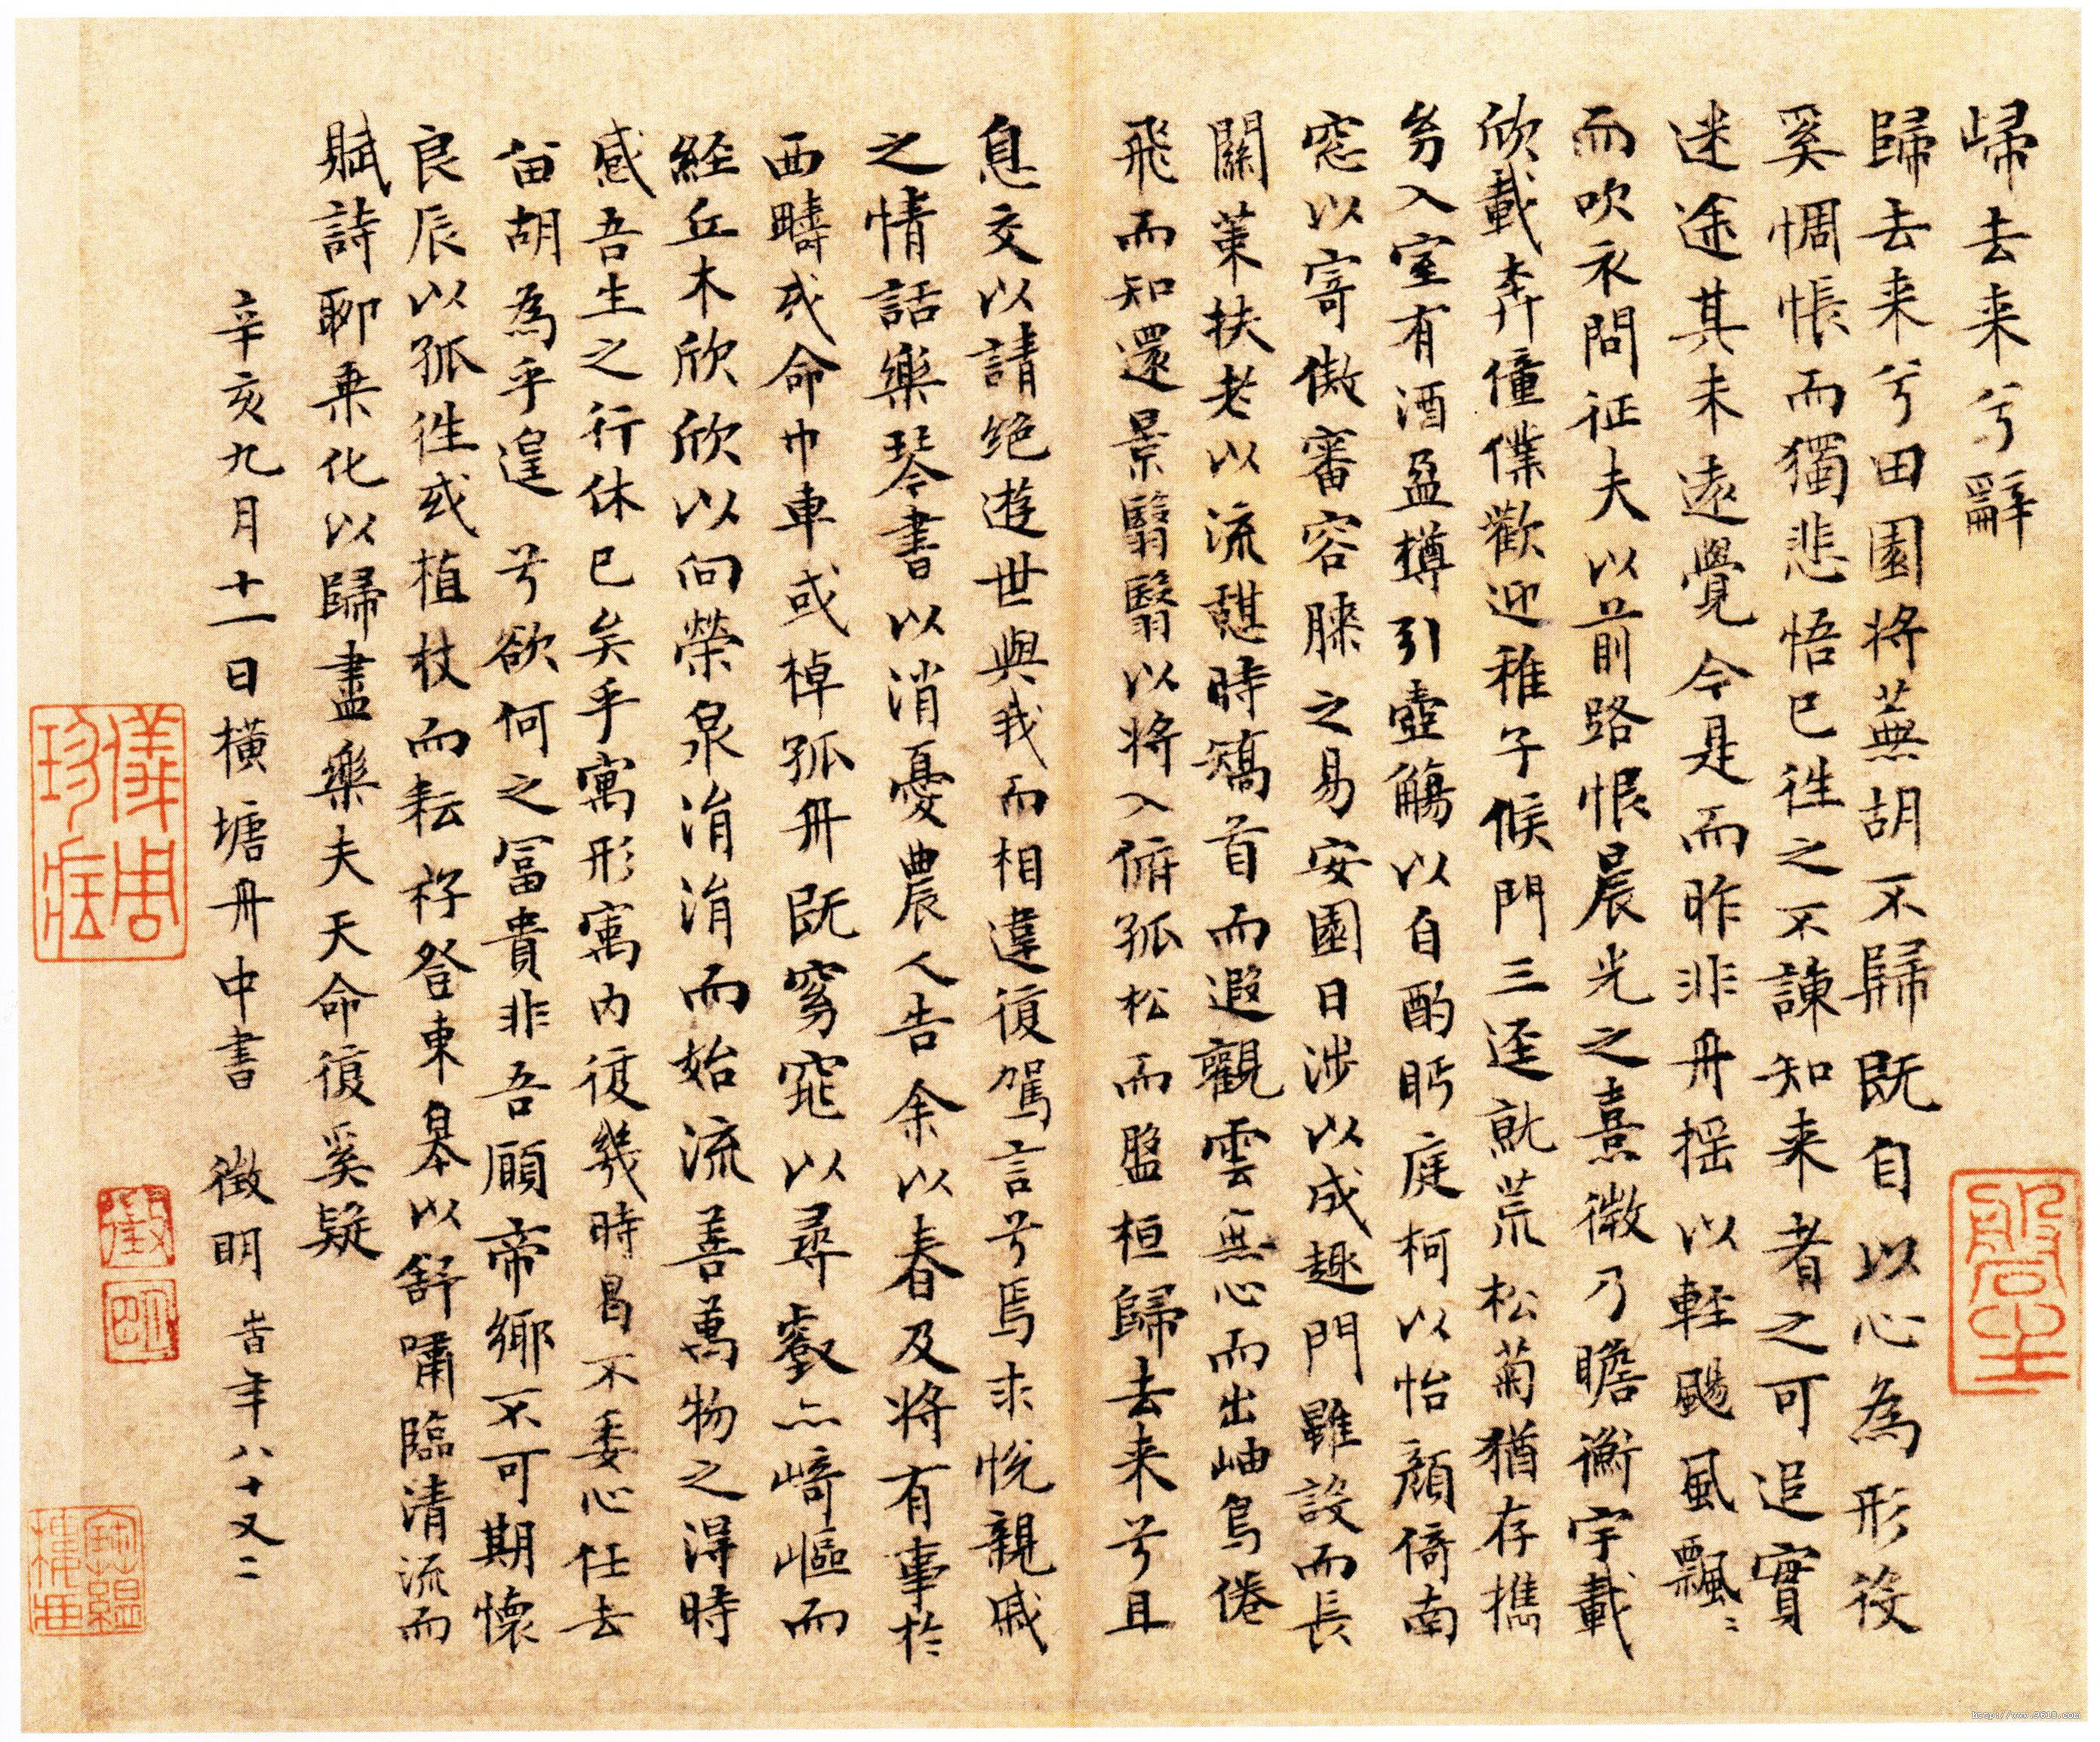 歸去来兮辭
歸去来兮田園将蕪胡不歸既自以心為形役
奚惆悵而獨悲悟已往之不諫知来者之可追實
迷途其未遠覺今是而昨非舟摇以輕颺風飄〻
而吹衣問征夫以前路恨晨光之熹微乃瞻衡宇載
欣載奔僮僕歡迎稚子候門三逕就荒松菊猶存携
幼入室有酒盈樽引壺觴以自酌眄庭柯以怡顔倚南
窓以寄傲審容膝之易安園日涉以成趣門雖設而長
關策扶老以流憇時矯首而遐觀雲無心而出岫鳥倦
飛而知還景翳翳以将入俯孤松而盤桓歸去来兮且
息交以請絶遊世與我而相違復駕言兮焉求悦親戚
之情話樂琴書以消憂農人告余以春及将有事於
西疇或命巾車或棹孤舟既窈窕以尋壑亦崎嶇而
経丘木欣欣以向榮泉涓涓而始流善萬物之得時
感吾生之行休已矣乎寓形寓内復幾時曷不委心任去
留胡為乎遑兮欲何之冨貴非吾願帝鄉不可期懷
良辰以孤往或植杖而耘耔登東皋以舒嘯臨清流而
賦詩聊乗化以歸盡樂夫天命復奚疑
辛亥九月十一日橫塘舟中書 徵明 昔年八十又二
儀周珍藏
徵明
http://www.9610.com